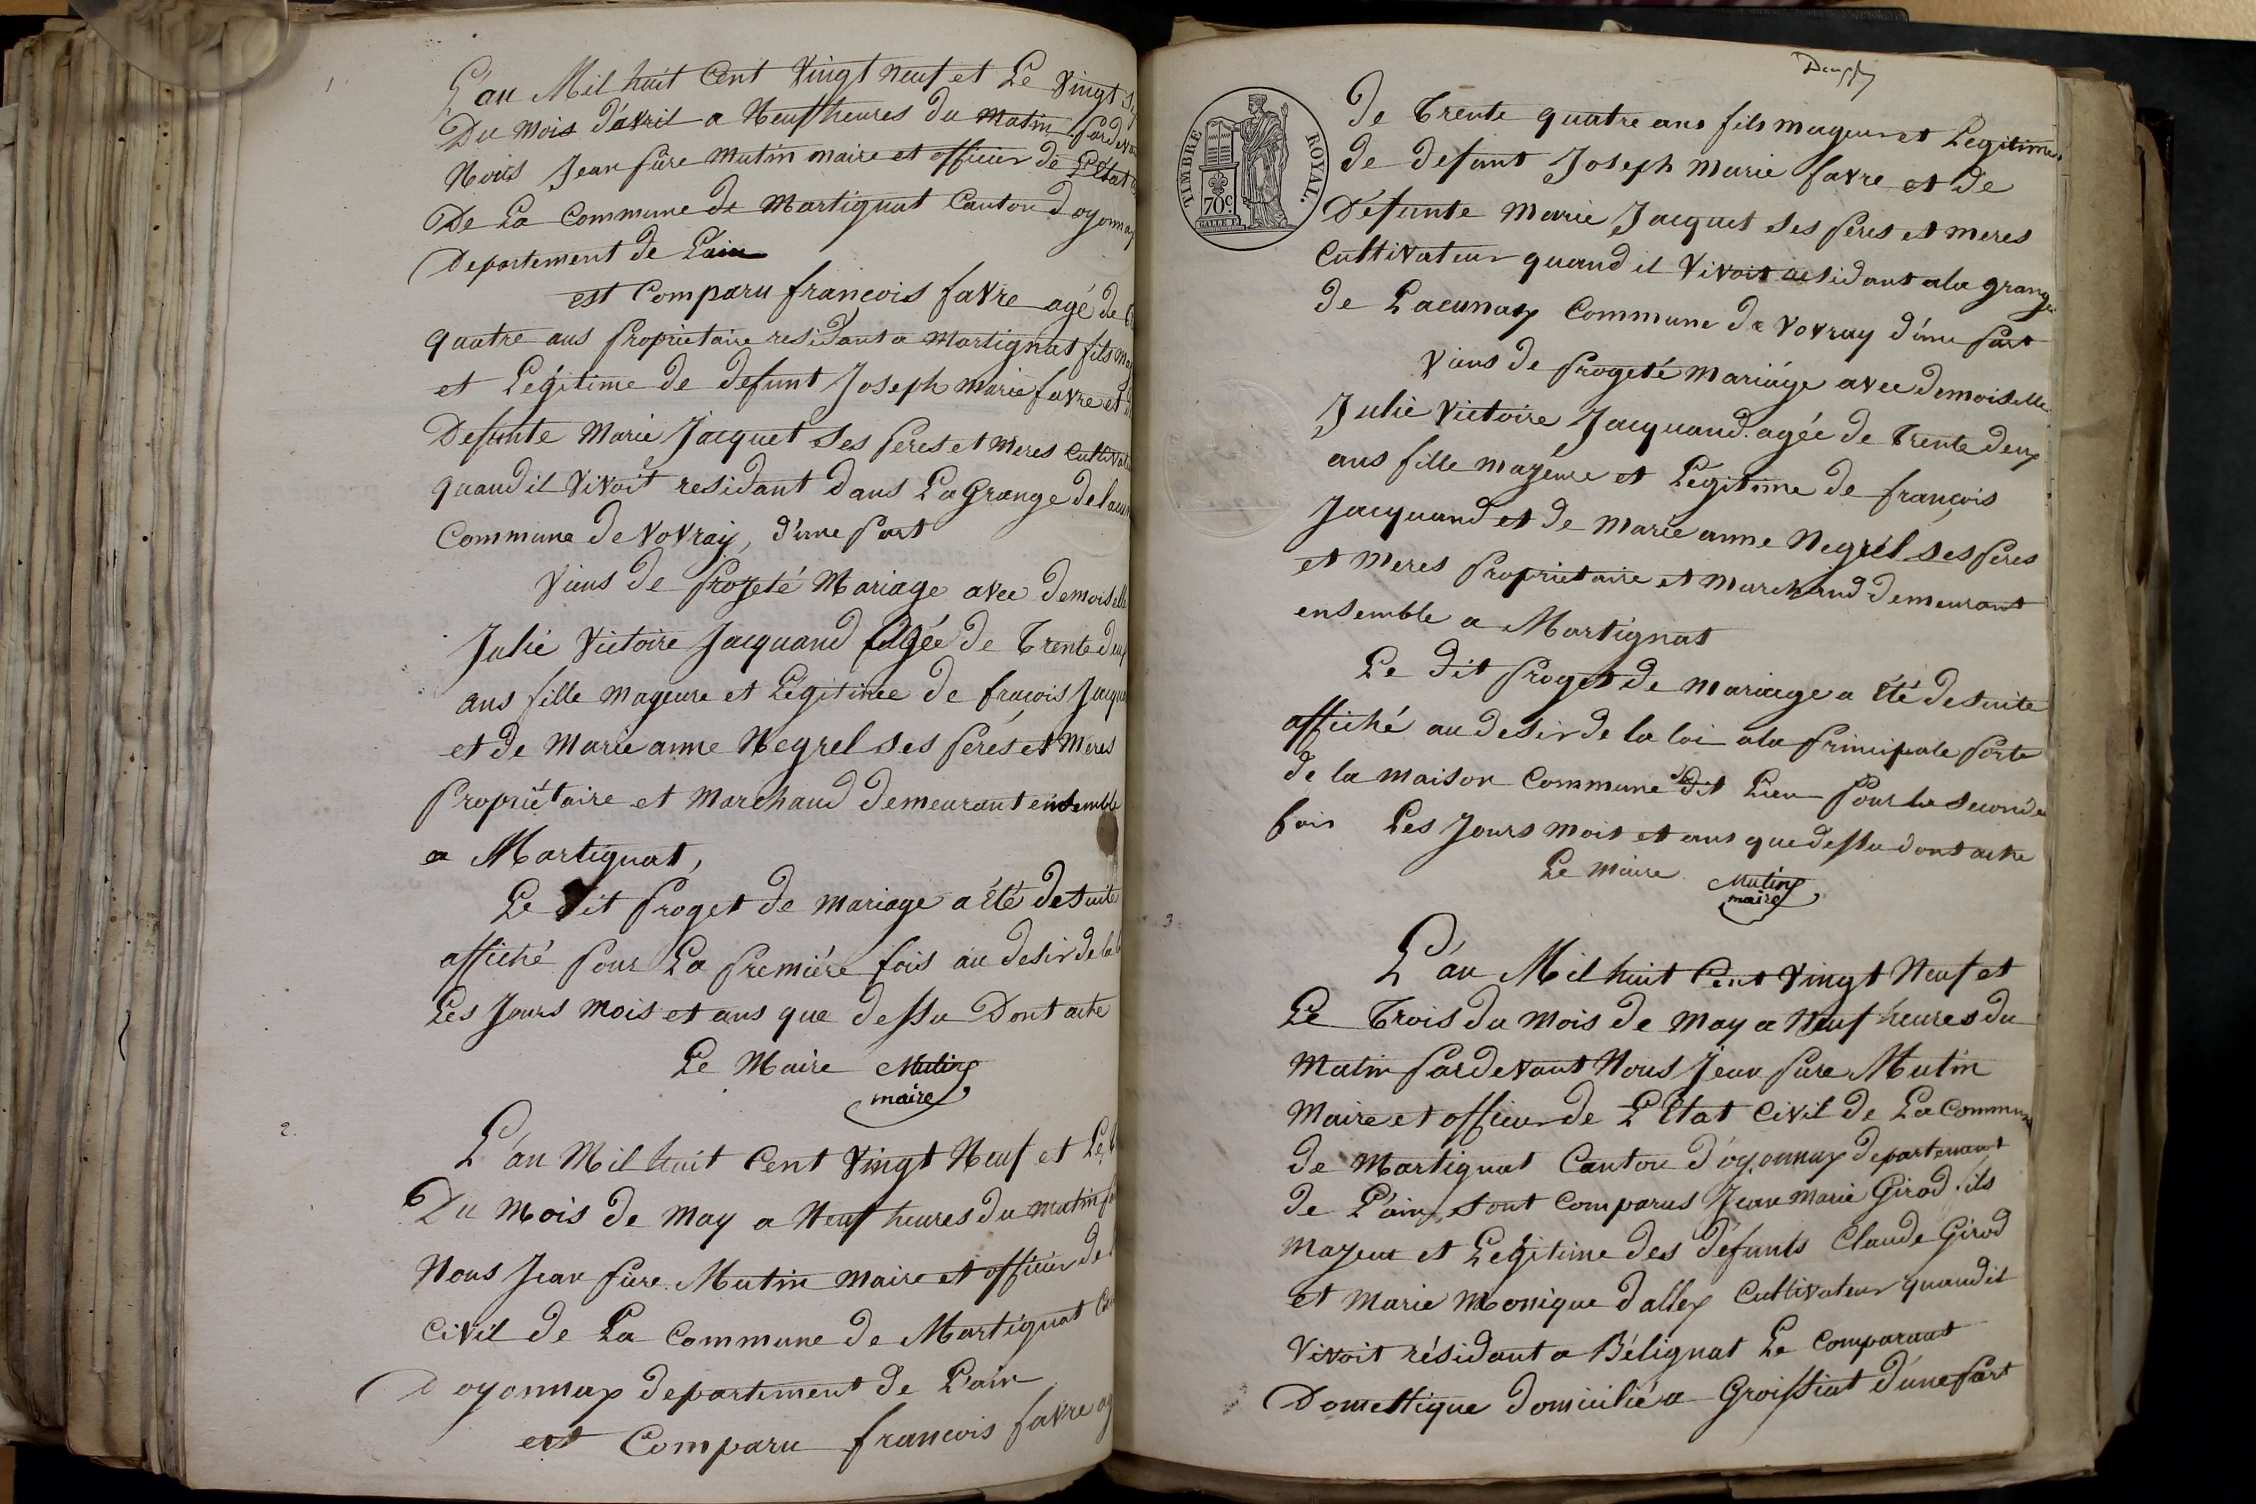 1
L'an Mil huit Cent Vingt Neuf et Le Vingt
Du mois d'avril a Neuf heures du matin Pardevan
Nous Jean Piere Mutin maire et officier de L'Etat
De La Commune de Martignat Canton doyonnax
Departement de L'ain
est Comparu francois favre agé de
quatre ans Proprietaire residant a Martignat fils ma
et Légitime de defunt Joseph marie favre et d
Defunte Marie Jacquet Ses Peres et Meres Cultivat
quand il Vivoit residant dans La Grange de lacu
Commune de Vovray, d'une Part
Viens de Projeté Mariage avec demoiselle
Julie Victoire Jacquand agée de Trente deux
ans fille mageure et Legitimee de francois Jacqua
et de Marie anne Negrel ses Perés et Meres
Propriétaire et Marchand demeurant ensemble
a Martignat,
Le dit Proget de mariage a été de Suite
affiché Pour La Premiére fois au desir de la l
Les Jours Mois et ans que dessu Dont acte
Le Maire Mutin
maire
2.
L'an Mil huit Cent Vingt Neuf et Le
Du Mois de May a Neuf heures du matin
Nous Jean Piere Mutin maire et officier de
Civil de La Commune de Martignat Can
D oyonnax departement de L'ain
est Comparu francois favre ag
TIMBRE ROYAL.
70c
de Trente quatre ans fils mageur et Legitime
de defunt Joseph Marie favre et de
Défunte Marie Jacquet Ses Peres et meres
Cultivateur quand il Vivoit residant a la grange
de Lacunax Commune de Vovray d'une Part
Viens de Progeté mariage avec demoiselle
Julie Victoire Jacquand agée de Trente deux
ans fille majeure et Légitime de françois
Jacquand et de Marie anne Negrel ses Peres
et Meres Proprietaire et Marchand demeurant
ensemble a Martignat
Le dit Proget de mariage a été de Suite
affiché au desir de la loi a la Principale Porte
de la maison Commune du dit Lieu Pour la seconde
fois Les Jours mois et ans que dessu dont acte
Le Maire Mutin
maire
3.
L'an Mil huit Cent Vingt Neuf et
Le Trois du Mois de May a Neuf heures du
Matin Pardevant Nous Jean Piere Mutin
Maire et officier de L'Etat Civil de La Commune
de Martignat Canton d'oyonnax departement
de L'ain sont Comparus Jean Marie Girod fils
Majeur et Legitime des défunts Claude Girod
et Marie Monique dallex Cultivateur quand il
Vivoit résidant a Bélignat Le Comparant
Domestique domicilié a Groissiat d'une Part